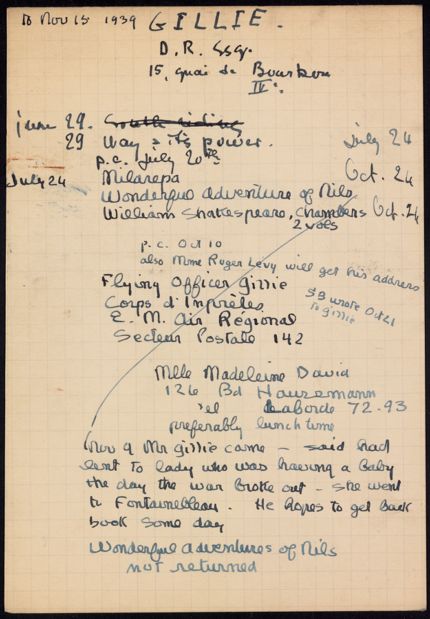 To Nov 15 1939 GILLIE.
D. R. Esq.
15, quai de Bourbon
IVe.
June 29. South riding
29 Way & its power. July 24
p.c. July 20th
July 24 Milarepa Oct. 24
Wonderful adventure of Nils
William Shakespeare, Chambers Oct. 24
2 vols
p.c. Oct 10
also Mme Roger Levy will get his address
Flying Officer Gillie
SB wrote Oct 21
to gillie
Corps d'Interprètes
E. M. Air Régional
Secteur Postale 142
Mlle Madeleine David
126 Bd Hauzemann
tel Laborde 72-93
preferably lunch time
Nov 9 Mr Gillie came - said had
lent to lady who was having a baby
the day the war broke out - she went
to Fontainebleau. He hopes to get back
book some day
Wonderful adventures of Nils
not returned